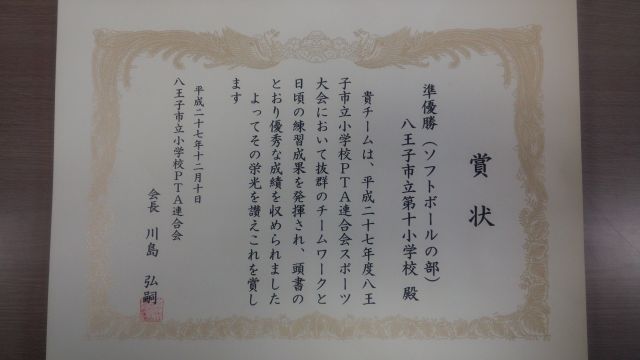 賞状
準優勝（ソフトボールの部）
八王子市立第十小学校 殿
貴チームは、平成二十七年度八王
子市立小学校PTA連合会スポーツ
大会において抜群のチームワークと
日頃の練習成果を発揮され、頭書の
とおり優秀な成績を収められました
よってその栄光を讃えこれを賞し
ます
平成二十七年十二月十日
八王子市立小学校PTA連合会
会長 川島 弘嗣